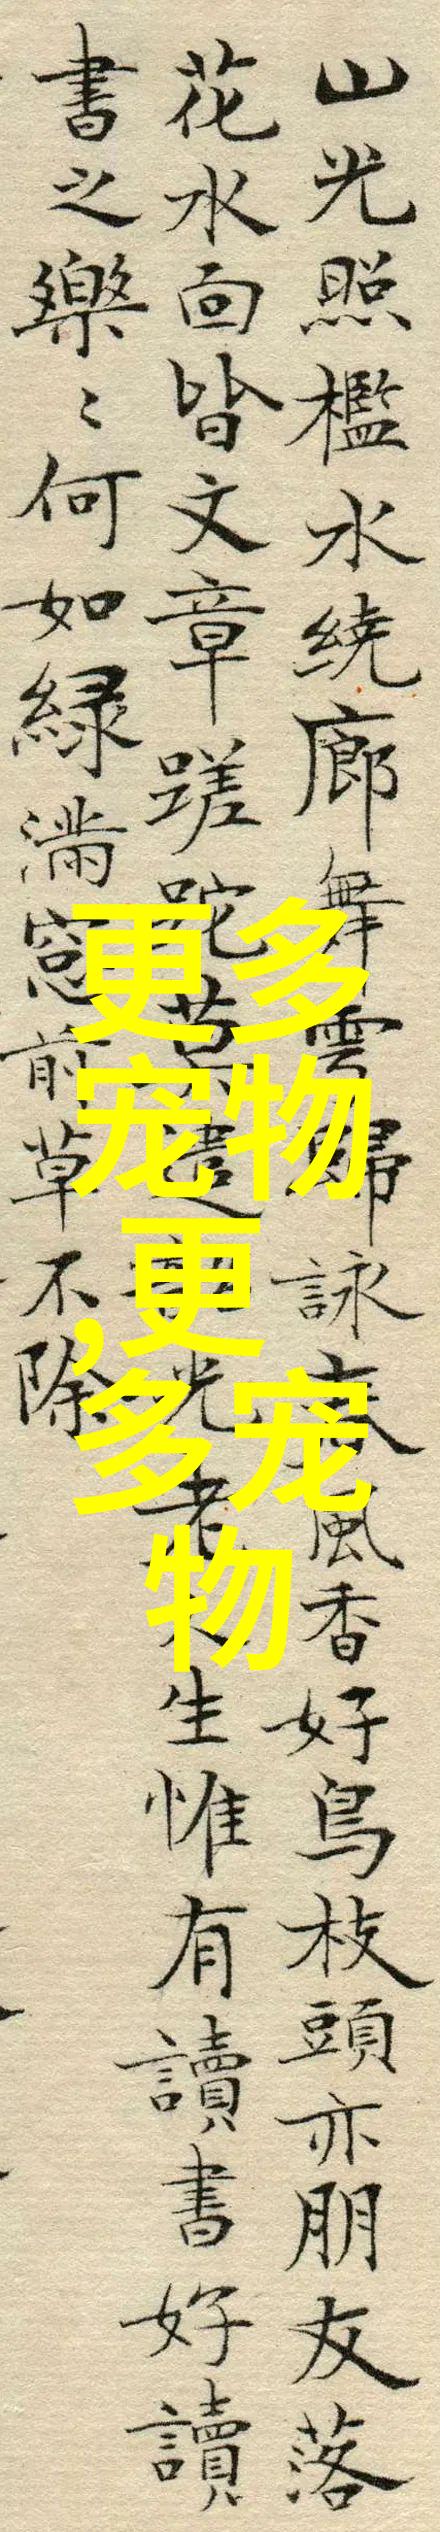 山光照檻水绕廊舞雲歸詠春風香好鳥枝頭亦朋友落
花水面皆文章蹉跎莫遣韶光老人生惟有讀書好讀
書之樂〻何如綠滿窓前草不除
更多
宠物
,更
多宠
物